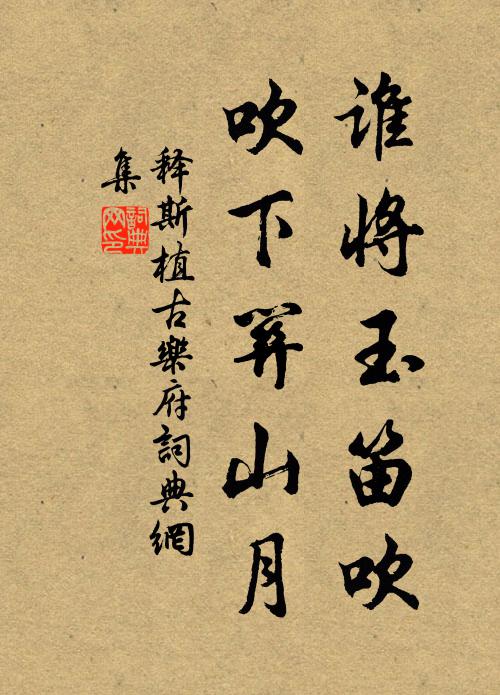 谁将玉笛吹
吹下関山月
释斯植古樂府詞典網
集
詞典网印